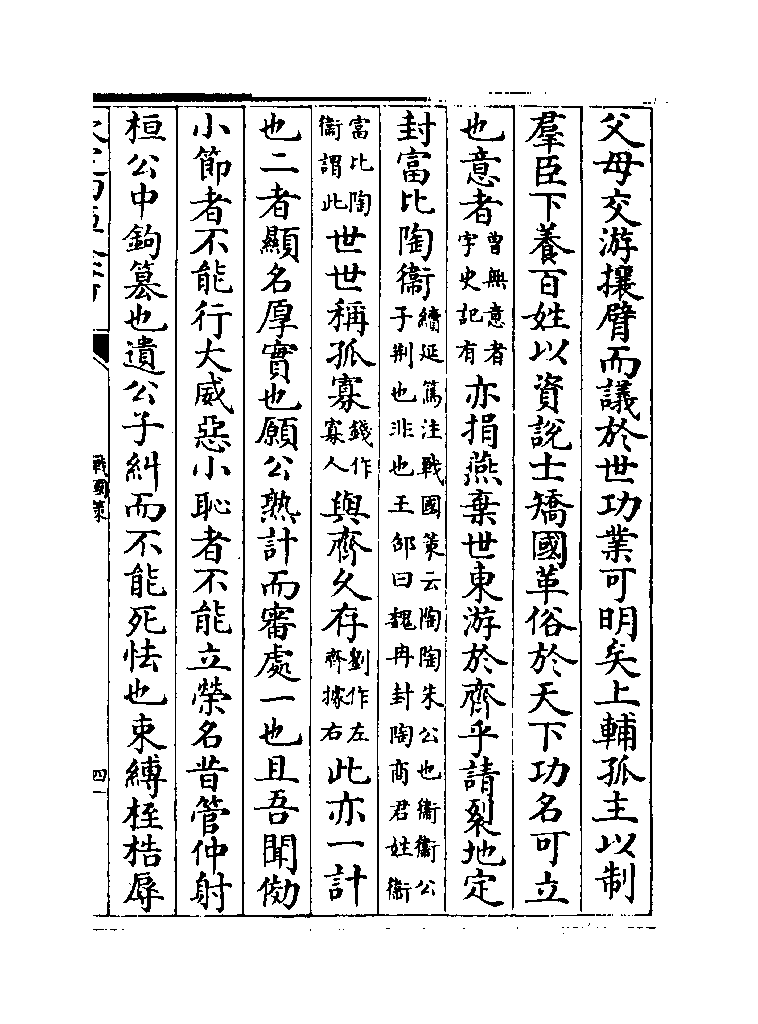 父母交游攘臂而議於世功業可明矣上輔孤主以制
羣臣下養百姓以資說士矯國革俗於天下功名可立
也意者曾無意者字史記有亦捐燕棄世東游於齊乎請裂地定
封富比陶衞續延篤注戰國策云陶陶朱公也衞衞公子荆也非也王邵曰魏冉封陶商君姓衞
富比陶衞謂此世世稱孤寡錢作寡人與齊久存劉作左齊據右此亦一計
也二者顯名厚實也願公熟計而審處一也且吾聞傚
小節者不能行大威惡小恥者不能立榮名昔管仲射
桓公中鉤篡也遺公子糾而不能死怯也束縛桎梏辱
戰國策